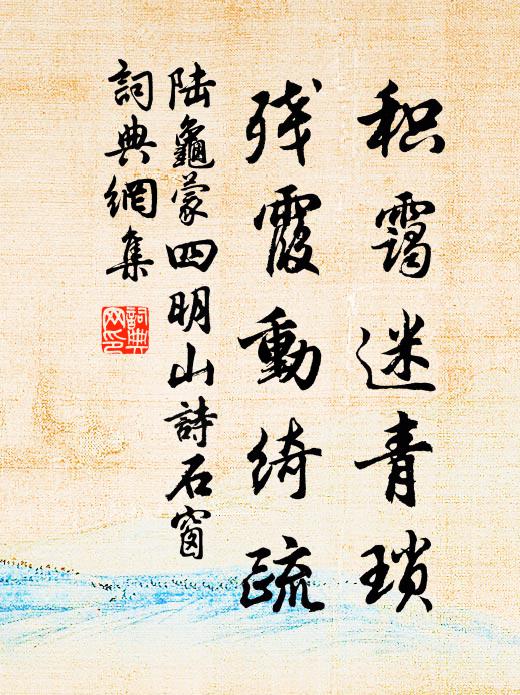 积靄迷青琐
残霞動绮疏
陆龜蒙四明山詩石窗
詞典網集
詞典
网印